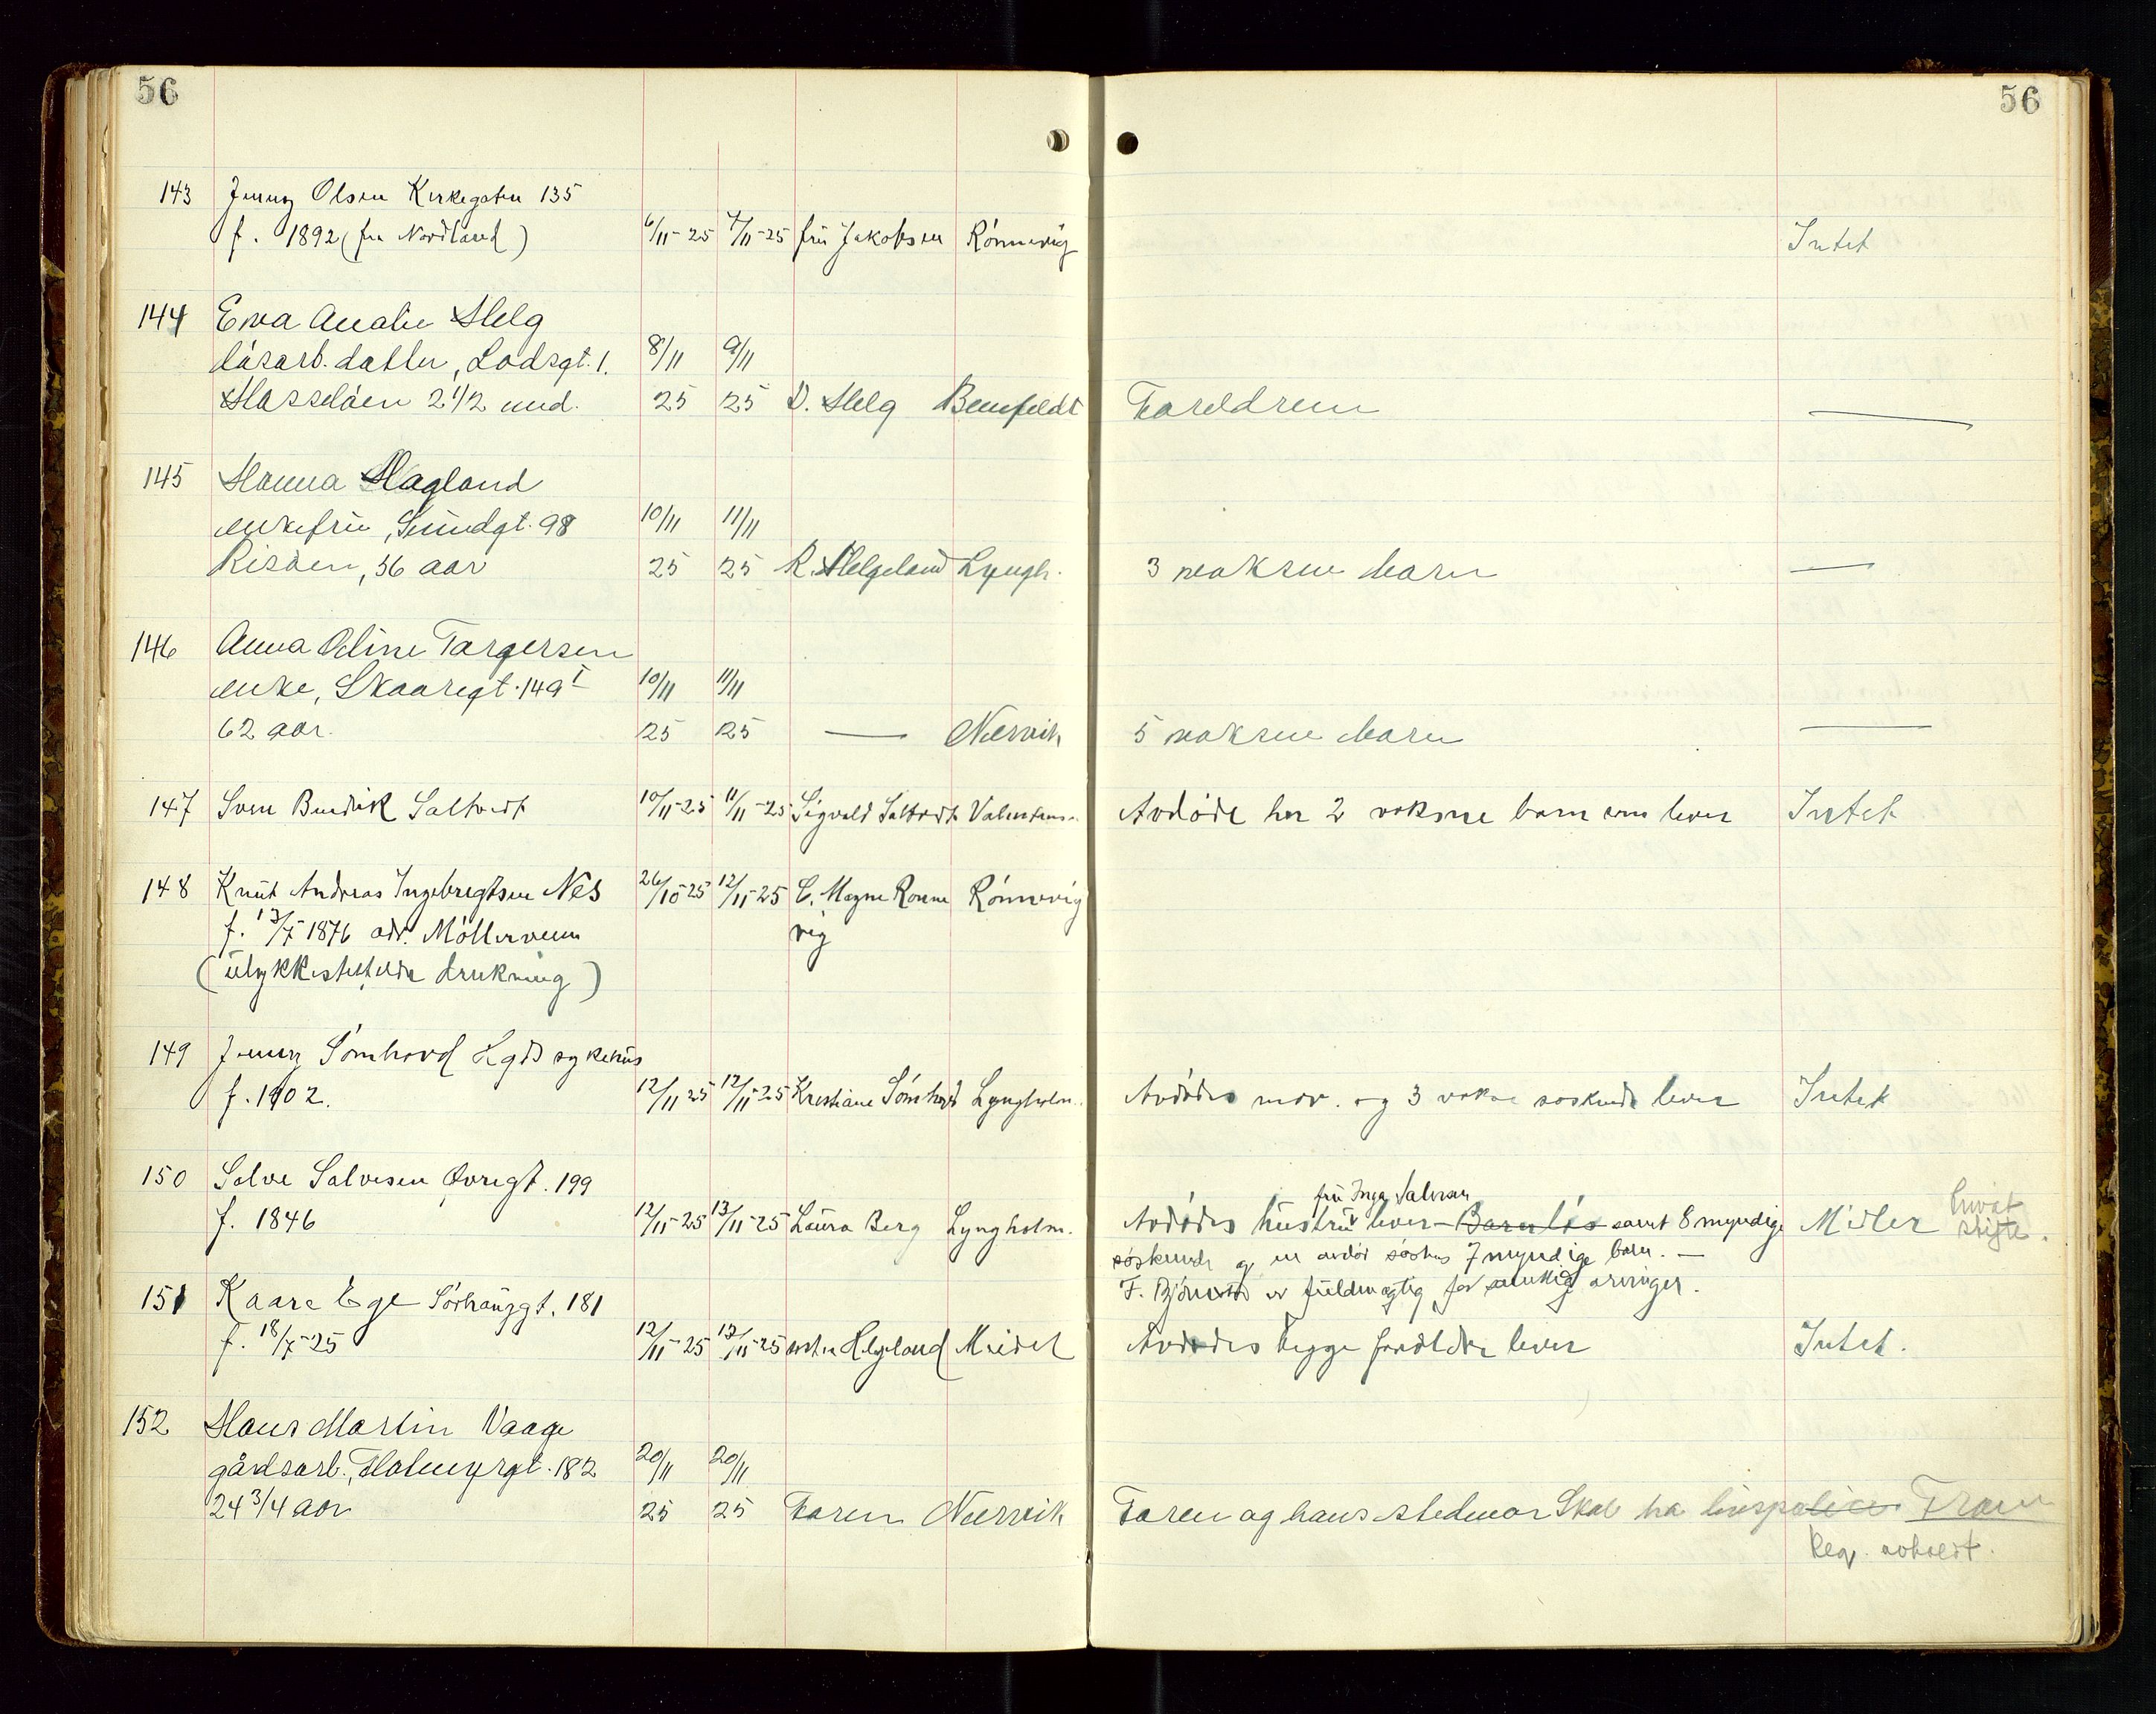 56
56
143 Jenny Olsen Kirkegaten 135
f. 1892 (fra Nordland) 6/11-25 7/11-25 frü Jakobsen Rönnevig Intet
144 Ewa Amalie Helg
låsarb. datter, Lodsgt. 1. 8/11 9/11
Hasselöen 2 1/2 mnd. 25 25 D. Helg Bernfeldt Foreldrene —
145 Hanna Hagland
enkefrü, Sundgt. 98 10/11 11/11
Risöen, 56 aar 25 25 R. Helgeland Lyngh. 3 voksne barn —
146 Anna Oline Torgersen
enke, Skaaregt. 149 I 10/11 11/11
62 aar. 25 25 — Nervik 5 voksne barn —
147 Sven Bendik Saltvedt 10/11-25 11/11-25 Sigvald Saltvedt Valentins. Avdöde har 2 voksne barn som lever Intet
148 Knut Andreas Ingebregtsen Nes 26/10-25 12/11-25 C. Magne Rönne Rönnevig
f. 13/7 1876 adr. Möllerveien vig
(ulykkestilfelde drukning)
149 Jenny Sömhovd Hgds sykehus
f. 1902. 12/11 25 12/11-25 Kristiane Sömhovd Lyngholm. Avdödes mor og 3 voksne söskende lever Intet
150 Salve Salvesen Øvregt. 199 frü Inga Salvesen
f. 1846 12/11-25 13/11-25 Laura Berg Lyngholm. Avdödes hustru lever — Barnlös samt 8 myndige Midler Privat skifte.
söskende og en avdöd sösters 7 myndige barn. —
F. Björnstad er fuldmagtig for samtlige arvinger.
151 Kaare Ege Sörhauggt. 181
f. 18/7-25 12/11-25 12/11-25 Helgeland Meidel Avdödes begge foreldre lever Intet.
152 Hans Martin Vaage
gårdsarb., Holmyrgt. 182 20/11 20/11
24 3/4 aar 25 25 Faren Nervik Faren og hans stedmor Skal ha livspolice Fram
Reg. avholdt.